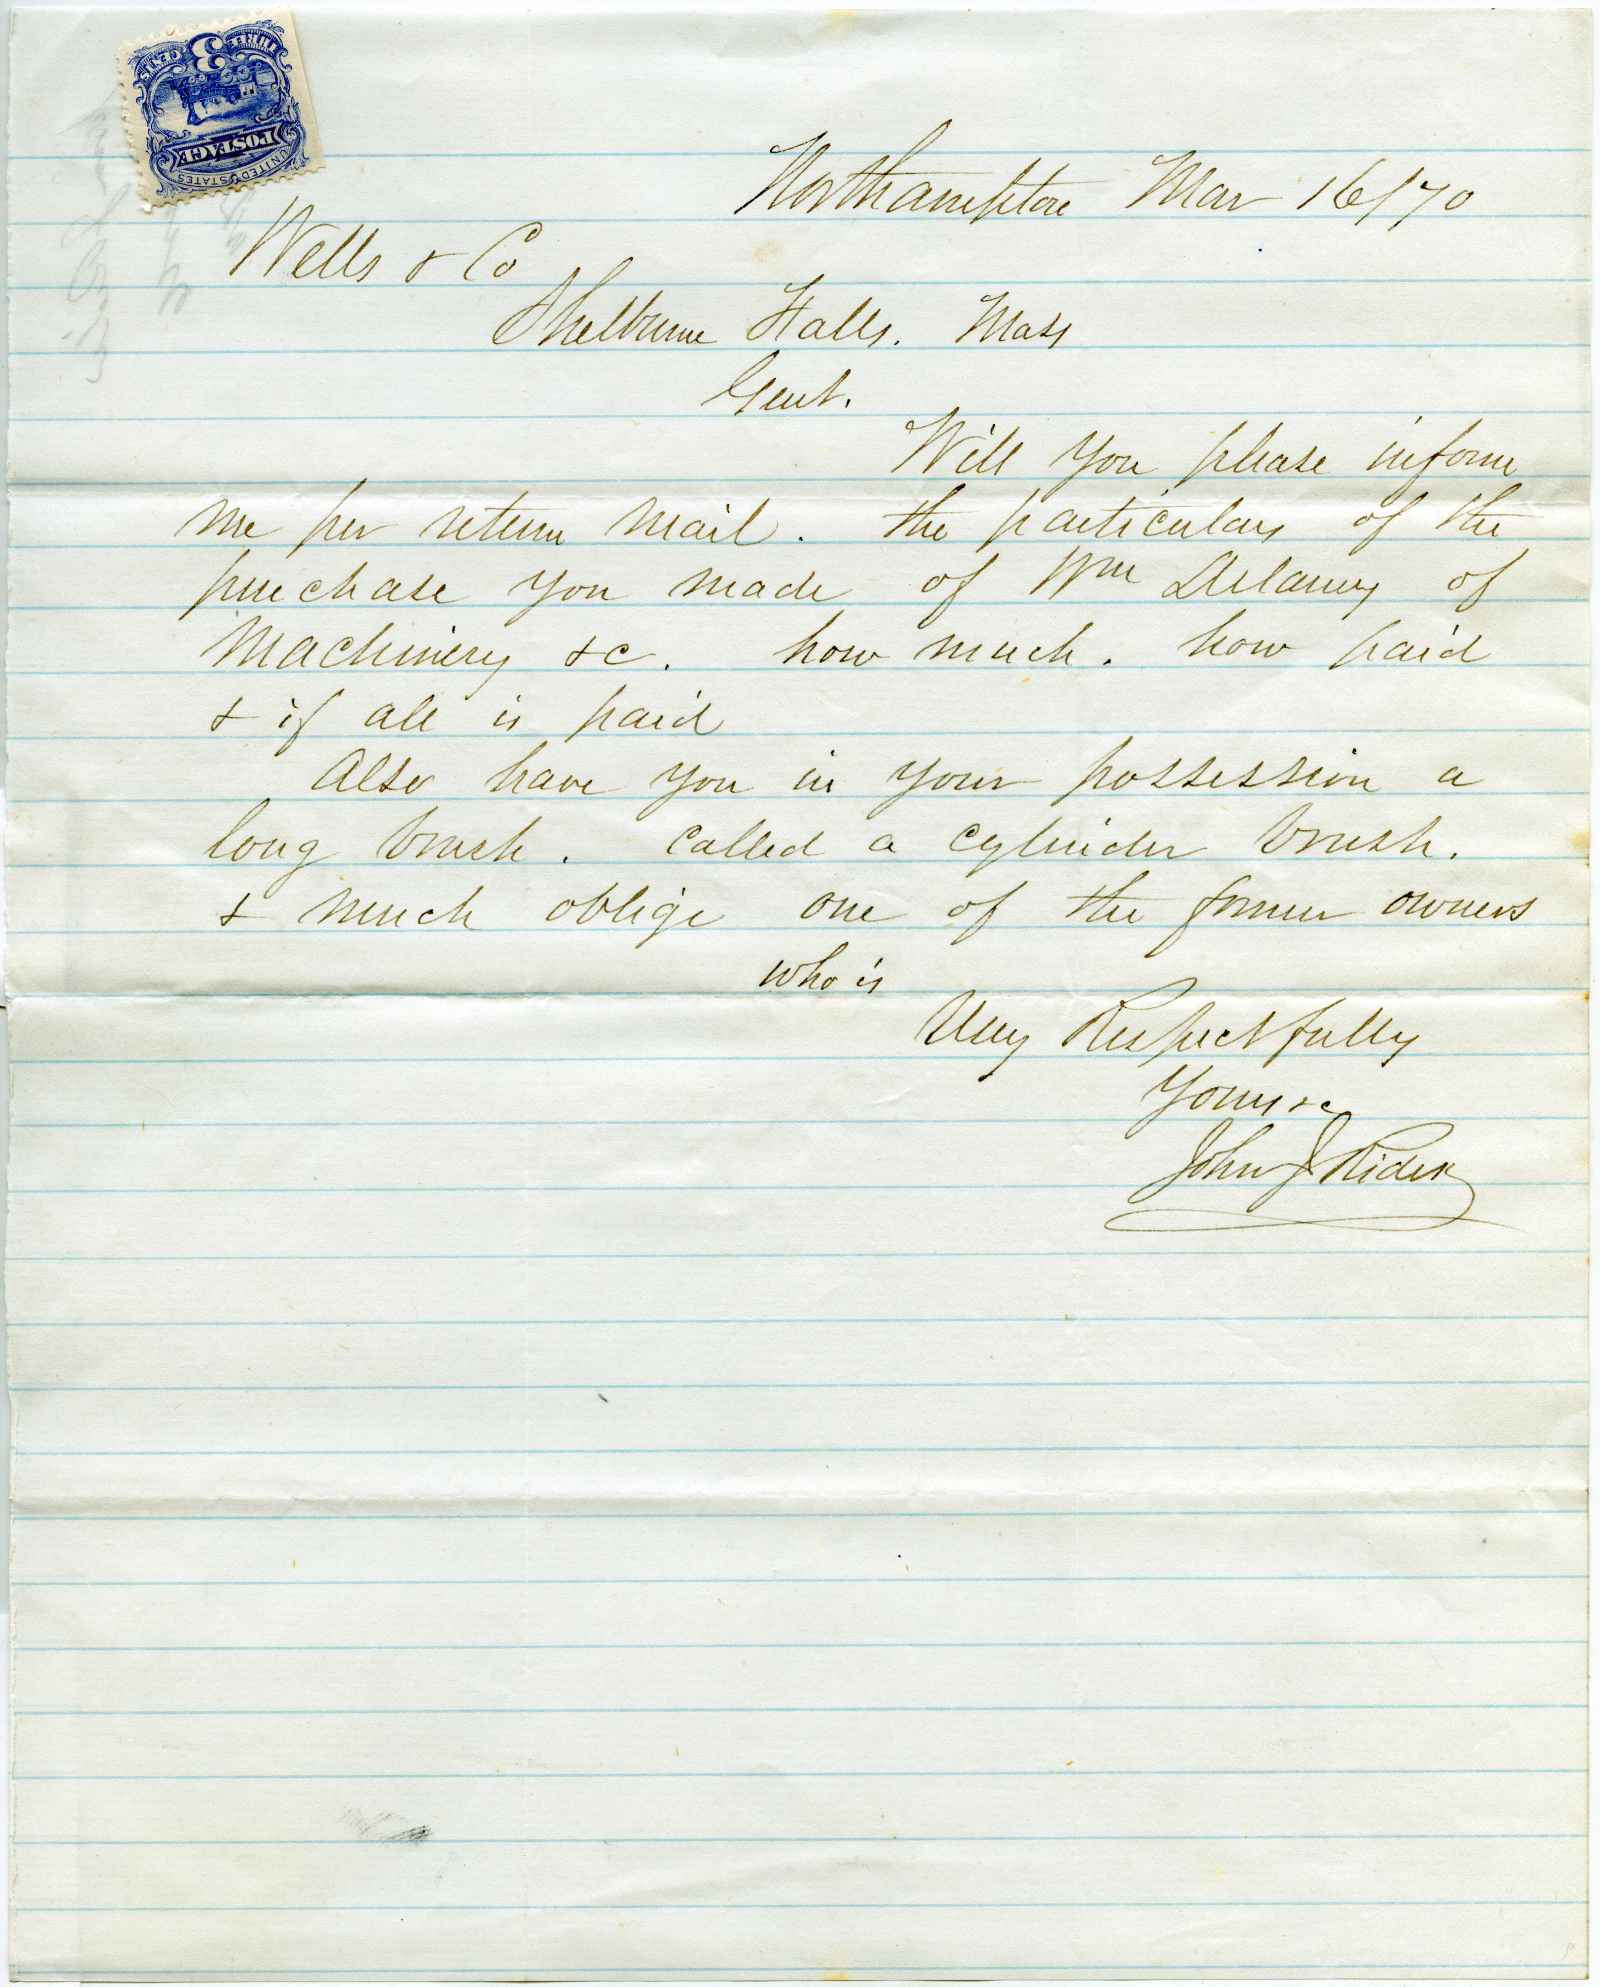 THREE CENTS
3
POSTAGE
UNITED STATES
Northampton Mar 16/70
Wells & Co
Shelburne Falls. Mass
Gent.
Will you please inform
me per return mail. the particulars of the
purchase you made of Wm Delaney of
Machinery &c. how much. how paid
& if all is paid
Also have you in your possession a
long brush. called a cylinder brush.
& much oblige one of the former owners
who is
Very Respectfully
Yours &c
John J Rider